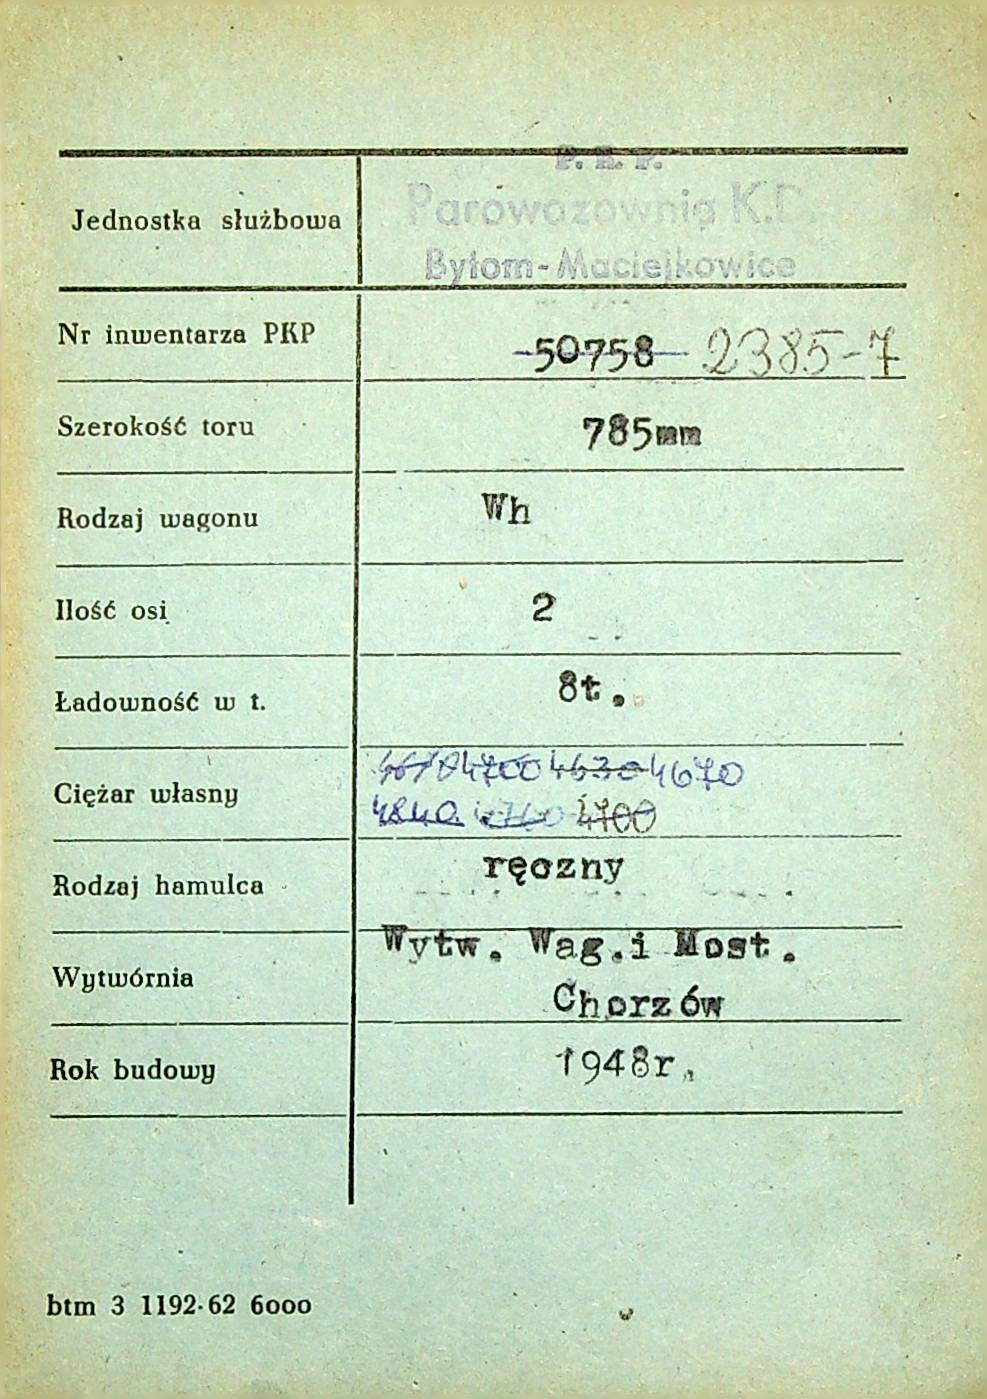 P. K. P.
Parowozownia K.D.
Jednostka służbowa
Bytom-Maciejkowice
Nr inwentarza PKP
50758 2385-7
Szerokość toru
785mm
Rodzaj wagonu
Wh
Ilość osi
2
Ładowność w t.
8t.
4700 4630 4670
Ciężar własny
4840 4700
Rodzaj hamulca
ręczny
Wytw. Wag.i Most.
Wytwórnia
Chorzów
Rok budowy
1948r.
btm 3 1192-62 6000